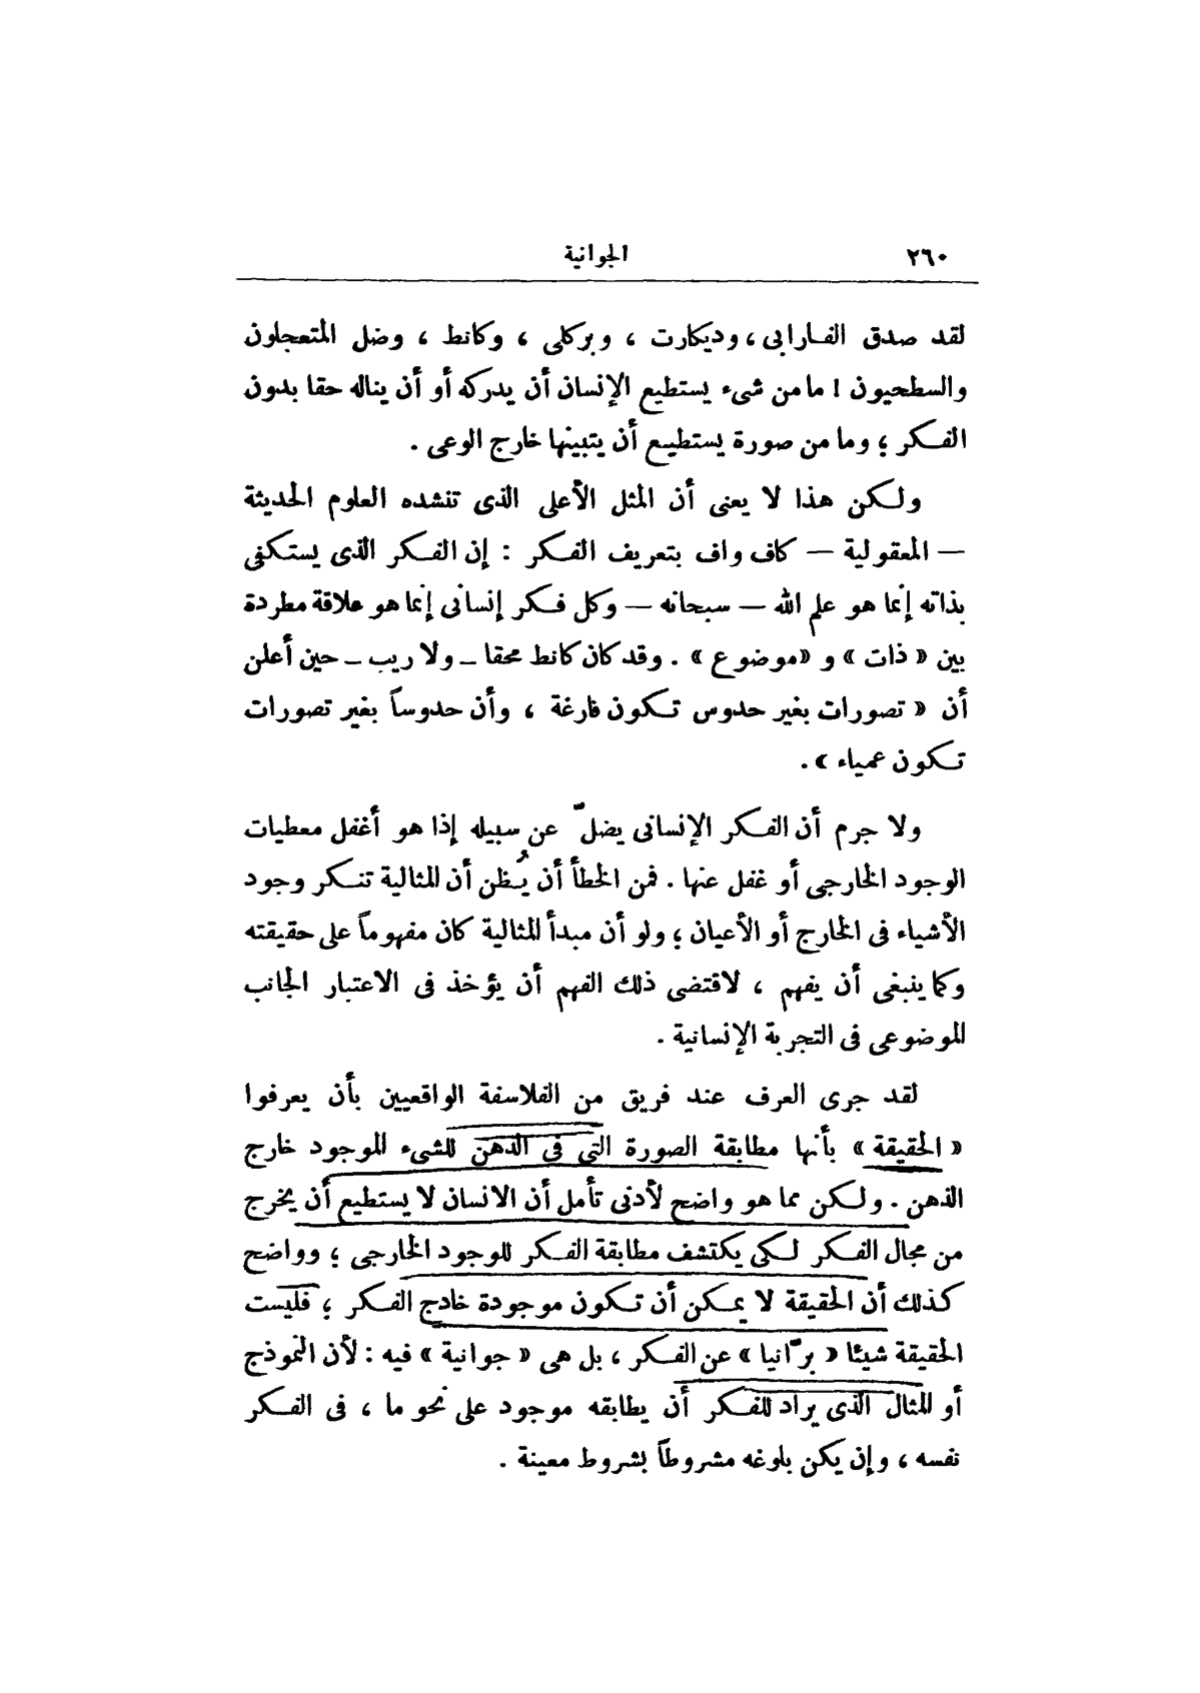 ٢٦٠
الجوانية
لقد صدق الفارابى ، وديكارت ، وبركلى ، وكانط ، وضل المتعجلون
والسطحيون ! ما من شىء يستطيع الإنسان أن يدركه أو أن يناله حقا بدون
الفكر ؛ وما من صورة يستطيع أن يتبينها خارج الوعى .
ولكن هذا لا يعنى أن المثل الأعلى الذى تنشده العلوم الحديثة
— المعقولية — كاف واف بتعريف الفكر : إن الفكر الذى يستكفى
بذاته إنما هو علم الله — سبحانه — وكل فكر إنسانى إنما هو علاقة مطردة
بين « ذات » و « موضوع » . وقد كان كانط محقا – ولا ريب – حين أعلن
أن « تصورات بغير حدوس تكون فارغة ، وأن حدوساً بغير تصورات
تكون عمياء » .
ولا جرم أن الفكر الإنسانى يضلّ عن سبيله إذا هو أغفل معطيات
الوجود الخارجى أو غفل عنها . فمن الخطأ أن يُظن أن المثالية تنكر وجود
الأشياء فى الخارج أو الأعيان ؛ ولو أن مبدأ المثالية كان مفهوماً على حقيقته
وكما ينبغى أن يفهم ، لاقتضى ذلك الفهم أن يؤخذ فى الاعتبار الجانب
الموضوعى فى التجربة الإنسانية .
لقد جرى العرف عند فريق من الفلاسفة الواقعيين بأن يعرفوا
« الحقيقة » بأنها مطابقة الصورة التى فى الذهن للشىء الموجود خارج
الذهن . ولكن مما هو واضح لأدنى تأمل أن الانسان لا يستطيع أن يخرج
من مجال الفكر لكى يكتشف مطابقة الفكر للوجود الخارجى ؛ وواضح
كذلك أن الحقيقة لا يمكن أن تكون موجودة خارج الفكر ؛ فليست
الحقيقة شيئا « برّانيا » عن الفكر ، بل هى « جوانية » فيه : لأن النموذج
أو المثال الذى يراد للفكر أن يطابقه موجود على نحو ما ، فى الفكر
نفسه ، وإن يكن بلوغه مشروطاً بشروط معينة .